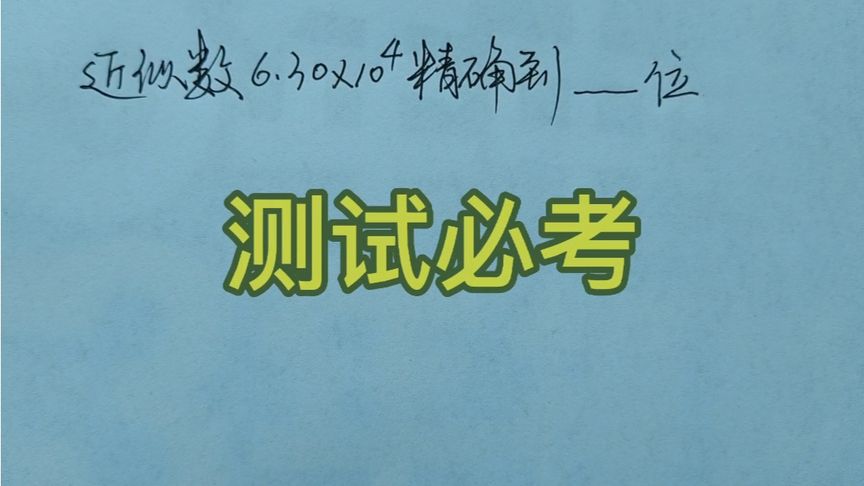 近似数6.30×10⁴精确到__位
测试必考